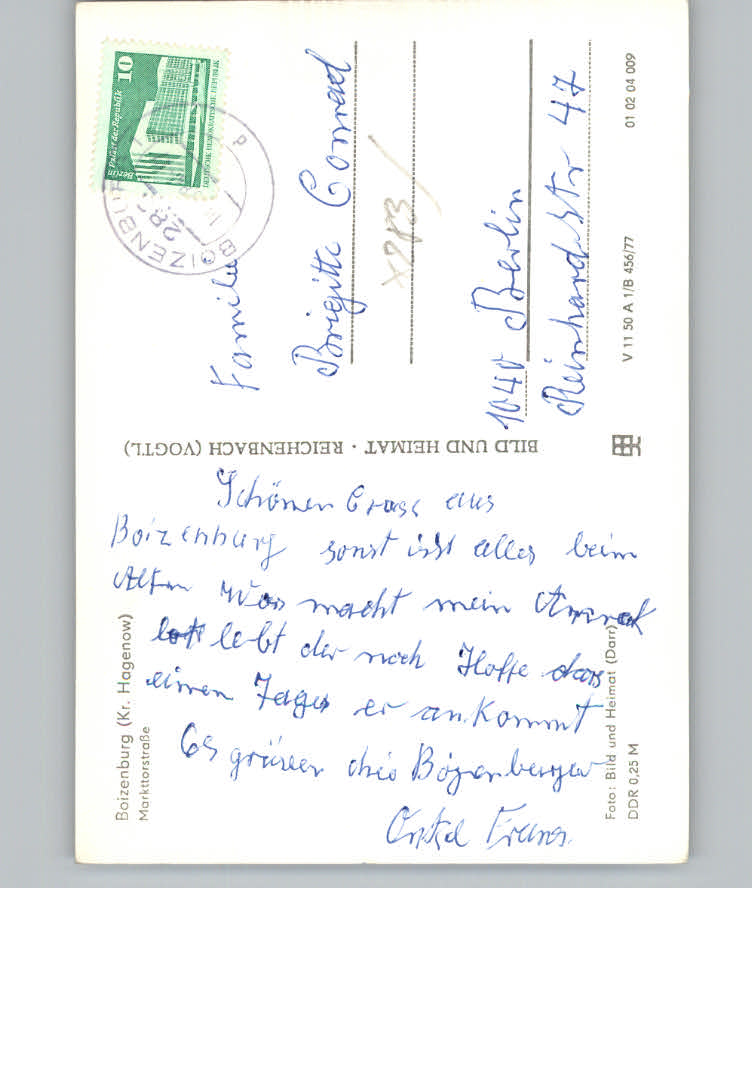 Schönen Gruss aus
Boizenburg sonst ist alles beim
Alten Was macht mein Anorak
lebt der noch Hoffe dass
einen Tages er ankommt
Es grüssen die
Onkel Franz
Boizenburg (Kr. Hagenow)
Markttorstraße
Foto: Bild und Heimat (Darr)
DDR 0,25 M
BILD UND HEIMAT · REICHENBACH (VOGTL)
10
Berlin Palast der Republik
DEUTSCHE DEMOKRATISCHE REPUBLIK
BOIZENBURG
Familie
Brigitte Conrad
1040 Berlin
Reinhardstr 47
V 11 50 A 1/B 456/77
01 02 04 009